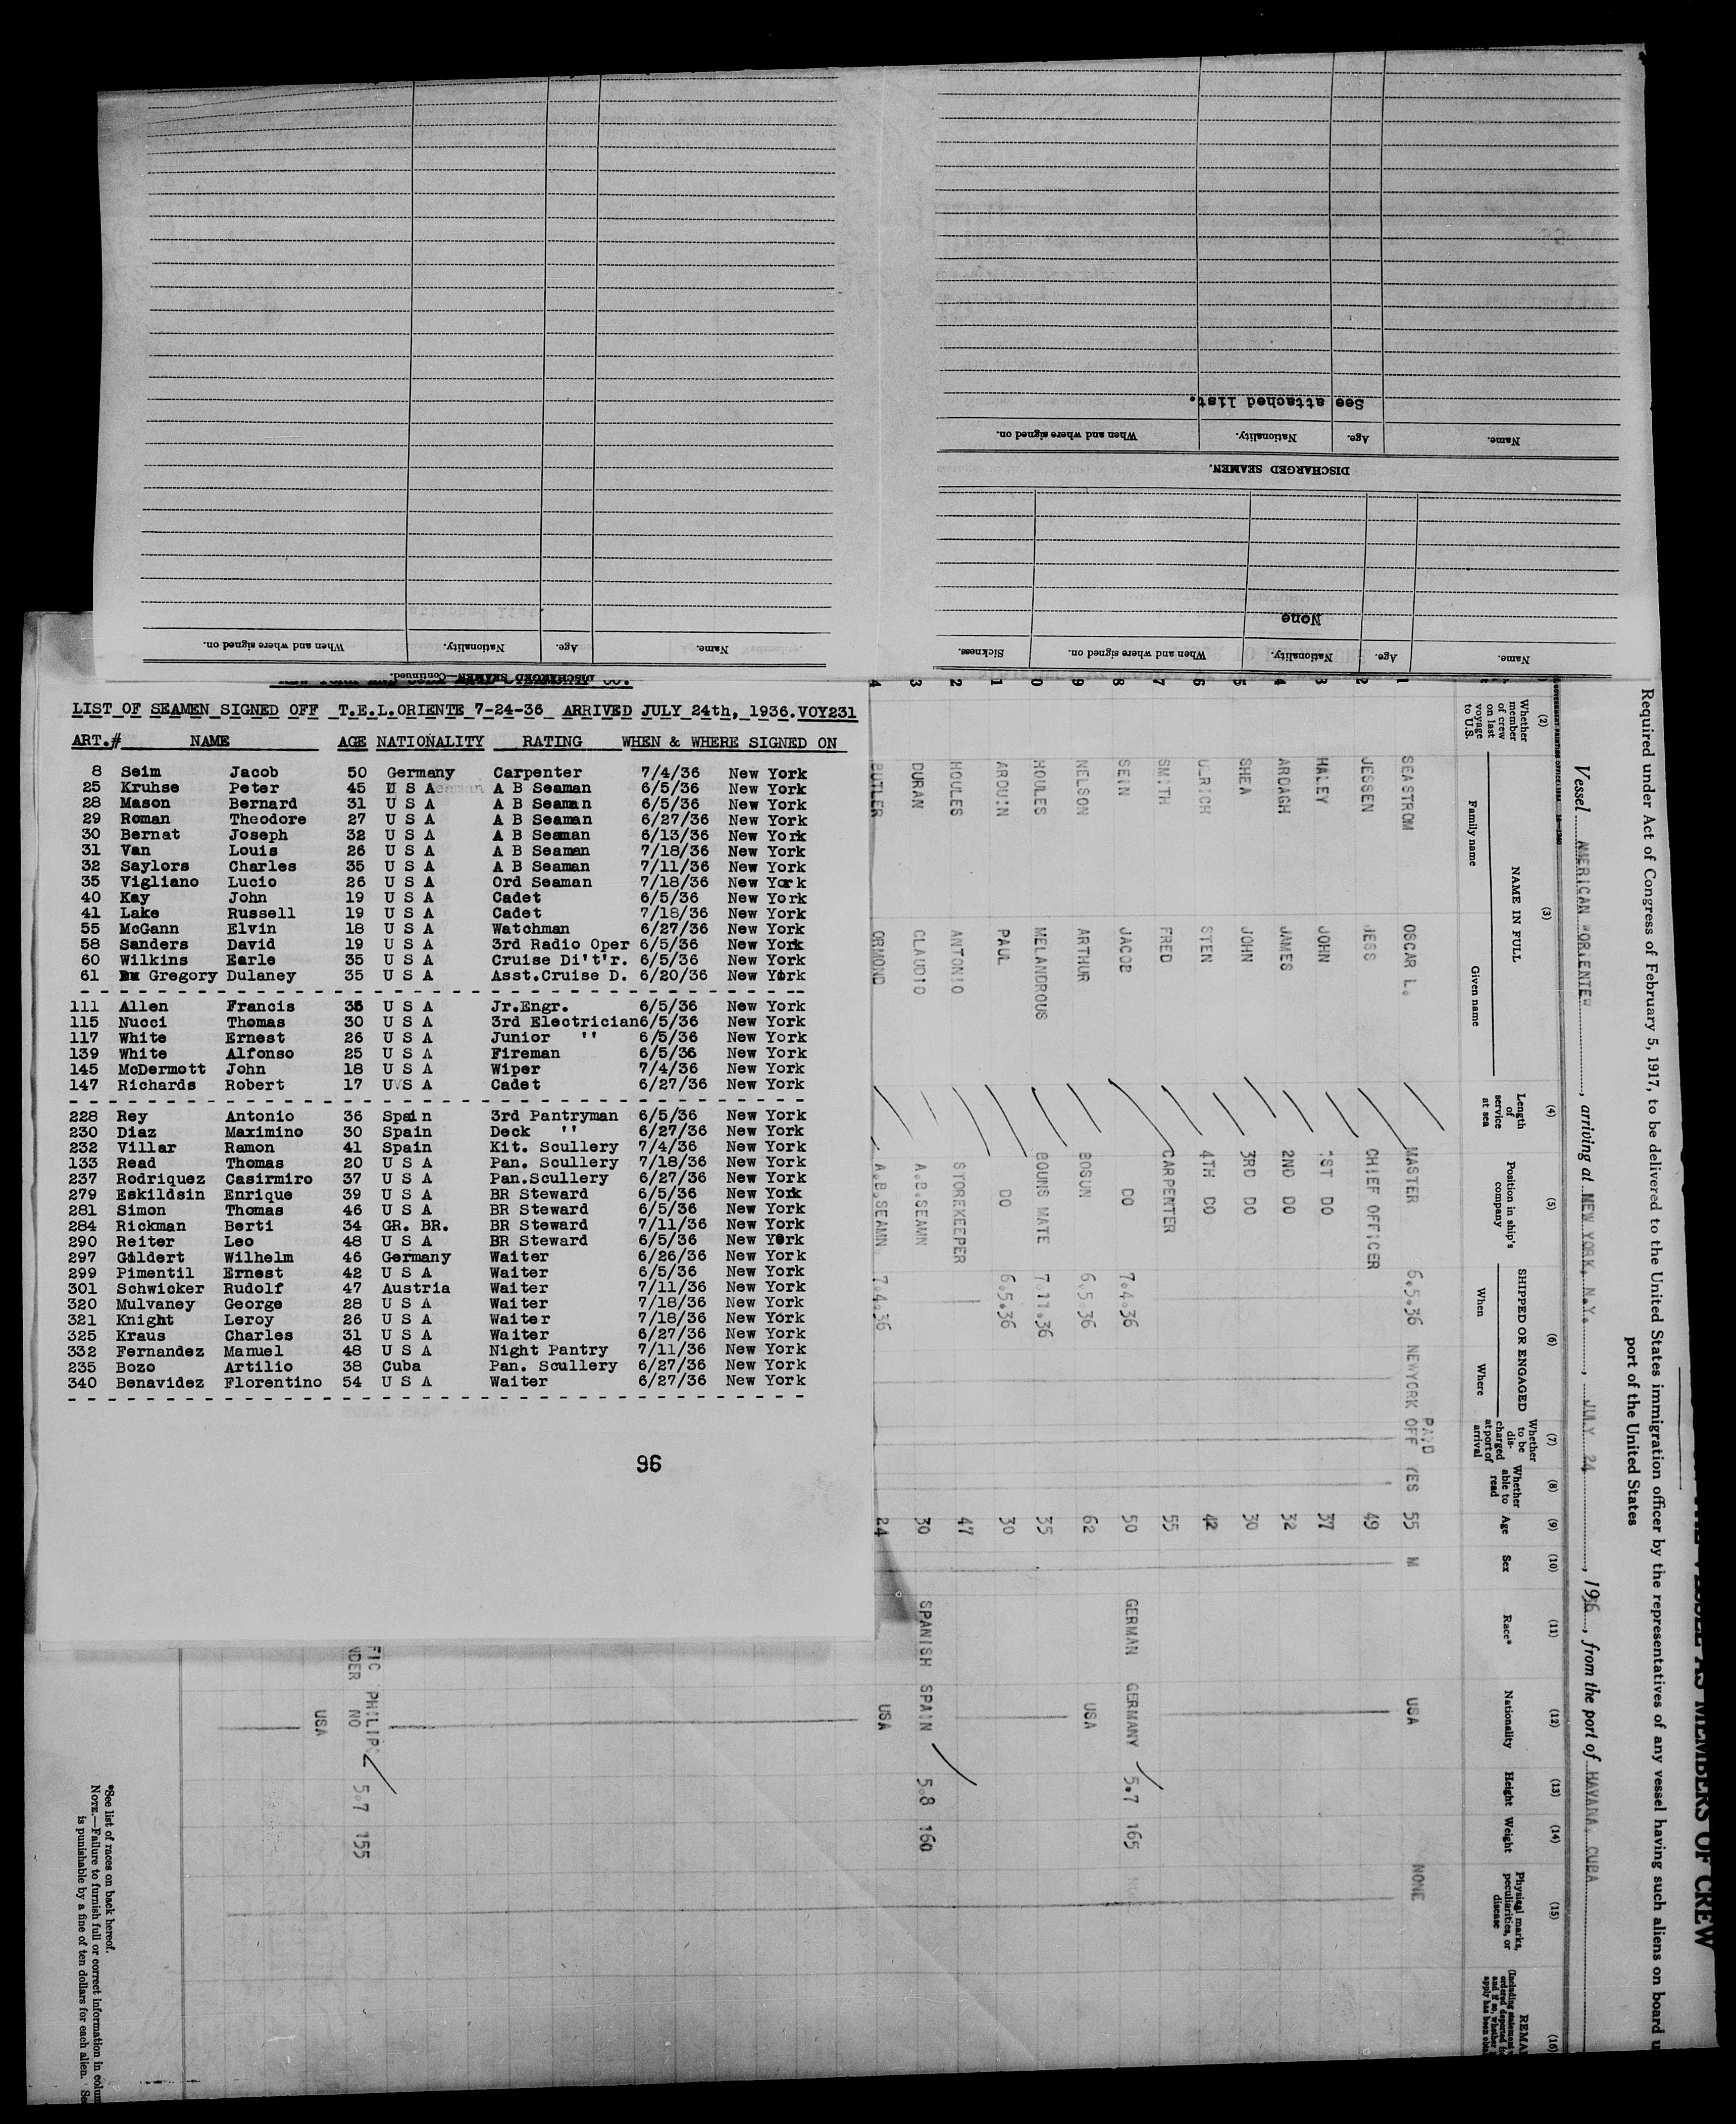 See attached list.
Name. Age. Nationality. When and where signed on.
DISCHARGED SEAMEN.
None
Name. Age. Nationality. When and where signed on. Sickness.
Name. Age. Nationality. When and where signed on.
DISCHARGED SEAMEN—Continued.
LIST OF SEAMEN SIGNED OFF T.E.L.ORIENTE 7-24-36 ARRIVED JULY 24th, 1936.VOY231
ART.# NAME AGE NATIONALITY RATING WHEN & WHERE SIGNED ON
8 Seim Jacob 50 Germany Carpenter 7/4/36 New York
25 Kruhse Peter 45 U S A A B Seaman 6/5/36 New York
28 Mason Bernard 31 U S A A B Seaman 6/5/36 New York
29 Roman Theodore 27 U S A A B Seaman 6/27/36 New York
30 Bernat Joseph 32 U S A A B Seaman 6/13/36 New York
31 Van Louis 26 U S A A B Seaman 7/18/36 New York
32 Saylors Charles 35 U S A A B Seaman 7/11/36 New York
35 Vigliano Lucio 26 U S A Ord Seaman 7/18/36 New York
40 Kay John 19 U S A Cadet 6/5/36 New York
41 Lake Russell 19 U S A Cadet 7/18/36 New York
55 McGann Elvin 18 U S A Watchman 6/27/36 New York
58 Sanders David 19 U S A 3rd Radio Oper 6/5/36 New York
60 Wilkins Earle 35 U S A Cruise Di't'r. 6/5/36 New York
61 Gregory Dulaney 35 U S A Asst.Cruise D. 6/20/36 New York
111 Allen Francis 35 U S A Jr.Engr. 6/5/36 New York
115 Nucci Thomas 30 U S A 3rd Electrician 6/5/36 New York
117 White Ernest 26 U S A Junior '' 6/5/36 New York
139 White Alfonso 25 U S A Fireman 6/5/36 New York
145 McDermott John 18 U S A Wiper 7/4/36 New York
147 Richards Robert 17 U S A Cadet 6/27/36 New York
228 Rey Antonio 36 Spain 3rd Pantryman 6/5/36 New York
230 Diaz Maximino 30 Spain Deck '' 6/27/36 New York
232 Villar Ramon 41 Spain Kit. Scullery 7/4/36 New York
133 Read Thomas 20 U S A Pan. Scullery 7/18/36 New York
237 Rodriquez Casirmiro 37 U S A Pan.Scullery 6/27/36 New York
279 Eskildsin Enrique 39 U S A BR Steward 6/5/36 New York
281 Simon Thomas 46 U S A BR Steward 6/5/36 New York
284 Rickman Berti 34 GR. BR. BR Steward 7/11/36 New York
290 Reiter Leo 48 U S A BR Steward 6/5/36 New York
297 Goldert Wilhelm 46 Germany Waiter 6/26/36 New York
299 Pimentil Ernest 42 U S A Waiter 6/5/36 New York
301 Schwicker Rudolf 47 Austria Waiter 7/11/36 New York
320 Mulvaney George 28 U S A Waiter 7/18/36 New York
321 Knight Leroy 26 U S A Waiter 7/18/36 New York
325 Kraus Charles 31 U S A Waiter 6/27/36 New York
332 Fernandez Manuel 48 U S A Night Pantry 7/11/36 New York
235 Bozo Artilio 38 Cuba Pan. Scullery 6/27/36 New York
340 Benavidez Florentino 54 U S A Waiter 6/27/36 New York
96
AS MEMBERS OF CREW
Required under Act of Congress of February 5, 1917, to be delivered to the United States immigration officer by the representatives of any vessel having such aliens on board
port of the United States
Vessel AMERICAN "ORIENTE", arriving at NEW YORK, N.Y., JULY 24, 1936, from the port of HAVANA, CUBA
(2) (3) (4) (5) (6) (7) (8) (9) (10) (11) (12) (13) (14) (15) (16)
Whether member of crew on last voyage to U.S.
NAME IN FULL
Family name Given name
Length of service at sea
Position in ship's company
SHIPPED OR ENGAGED
When Where
Whether to be discharged at port of arrival
Whether able to read
Age Sex Race* Nationality Height Weight
Physical marks, peculiarities, or disease
1 SEASTROM OSCAR L. MASTER 6.5.36 NEWYORK PAID OFF YES 55 M USA NONE
2 JESSEN JESS CHIEF OFFICER 49
3 HALEY JOHN 1ST DO 37
4 ARDAGH JAMES 2ND DO 32
5 SHEA JOHN 3RD DO 30
6 ULRICH STEN 4TH DO 42
7 SMITH FRED CARPENTER 55
8 SEIN JACOB DO 7.4.36 50 GERMAN GERMANY 5.7 165
9 NELSON ARTHUR BOSUN 6.5.36 62 USA
0 HOULES MELANDROUS BOUNS MATE 7.11.36 35
1 ARDUIN PAUL DO 6.5.36 30
2 HOULES ANTONIO STOREKEEPER 47
3 DURAN CLAUDIO A.B.SEAMN 30 SPANISH SPAIN 5.8 160
4 BUTLER ORMOND A.B.SEAMN. 7.4.36 24 USA
FIC PHILIP
NDER NO 5.7 155
USA
*See list of races on back hereof.
NOTE.—Failure to furnish full or correct information in colum
is punishable by a fine of ten dollars for each alien. Se